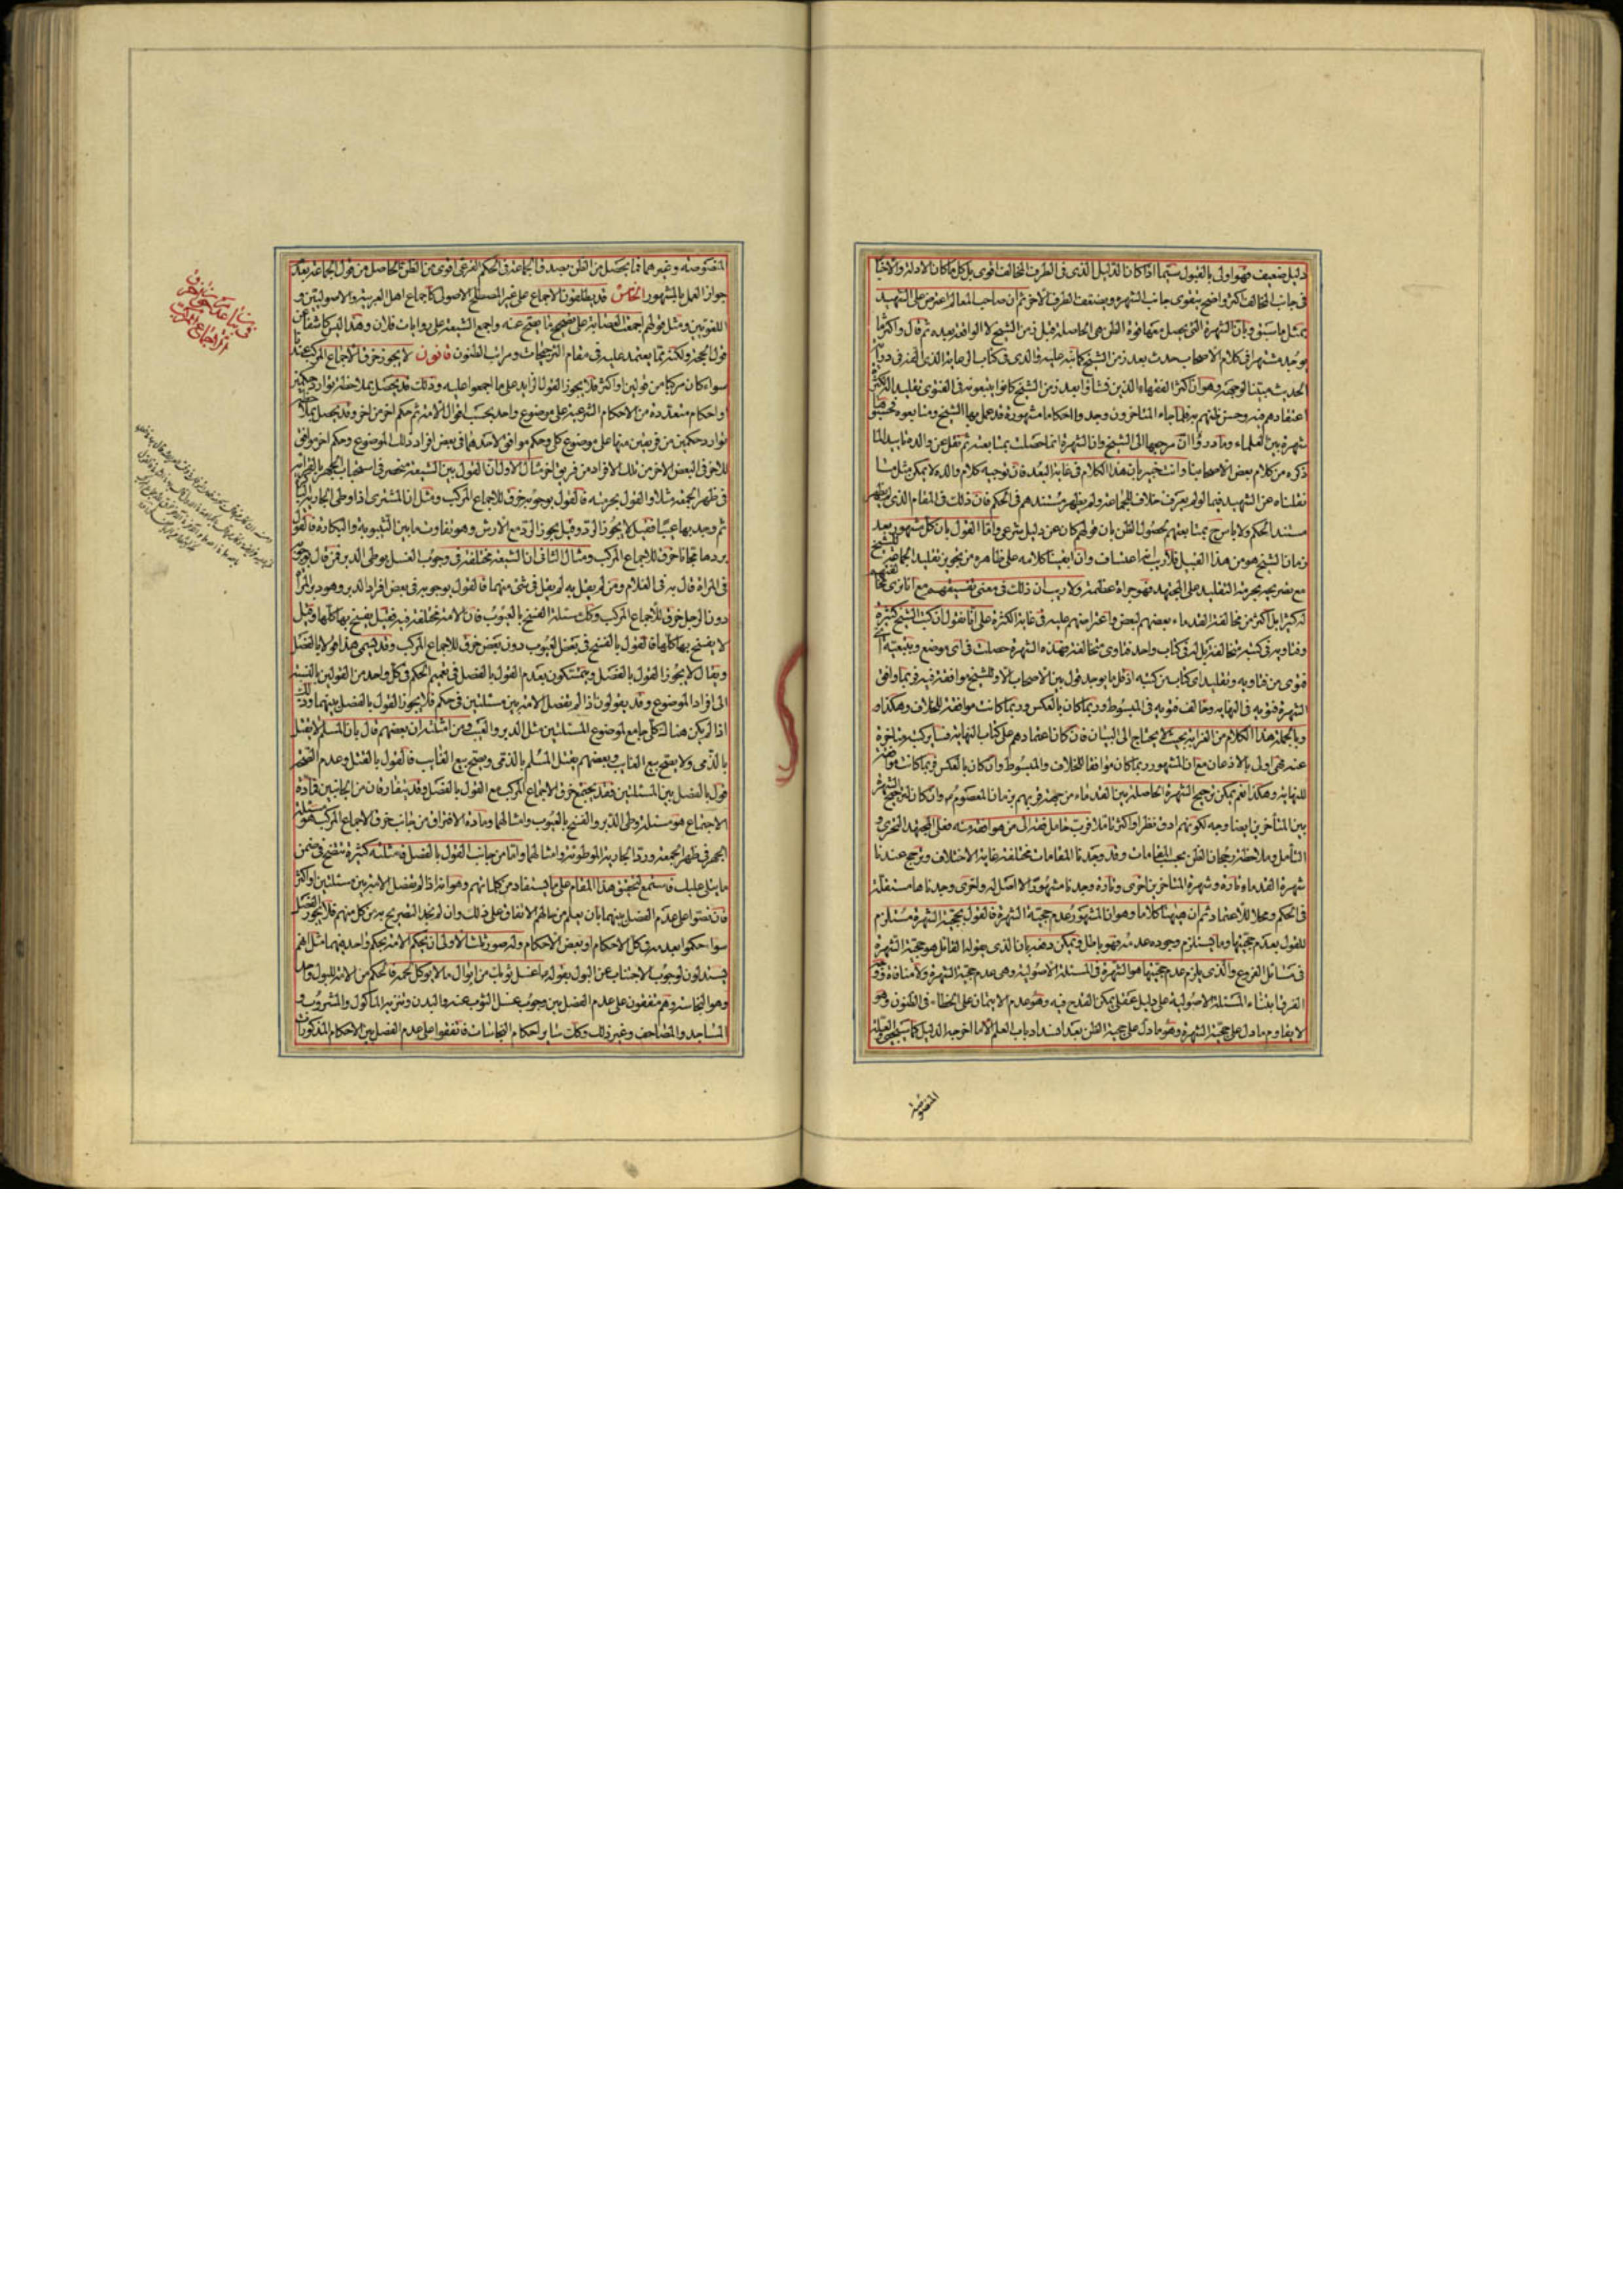 دليل ضعيف فهو اولى بالقبول سيما اذا كان الدليل الذى فى الطرف المخالف اقوى بل كل ما كان الادلة والاخبار
فى جانب المخالف اكثر واضح يتقوى جانب الشهرة ويضعف الطرف الاخر ثم ان صاحب المعالم اعترض على الشهيد
بمثل ما سبق وبان الشهرة التى يحصل معها قوة الظن هى الحاصلة قبل زمن الشيخ لا الواقعة بعده ثم قال واكثر ما
يوجد مشتهرا فى كلام الاصحاب حدث بعد زمن الشيخ كما نبه عليه والدى فى كتاب الرعاية الذى الفه فى دراية
الحديث مبينا لوجهه وهو ان اكثر الفقهاء الذين نشأوا بعد زمن الشيخ كانوا يتبعونه فى الفتوى تقليدا له لكثرة
اعتقادهم فيه وحسن ظنهم به فلما جاء المتاخرون وجدوا احكاما مشهورة قد عمل بها الشيخ ومتابعوه فحسبوها
شهرة بين العلماء وما دروا ان مرجعها الى الشيخ وان الشهرة انما حصلت بمتابعته ثم نقل عن والده متابعة لما
ذكره من كلام بعض الاصحاب وانت خبير بان هذا الكلام فى غاية البعد فان توجيه كلام والده لا يمكن بمثل ما
نقلناه عن الشهيد فيما لو لم يعرف خلاف للجماعة ولم يظهر مستندهم فى الحكم فان ذلك فى المقام الذى لم يظهر
مستند الحكم ولا باس بمتابعتهم لحصول الظن بان قولهم كان عن دليل شرعى واما القول بان كل مشهور بعد
زمان الشيخ هو من هذا القبيل فلا ريب انه اعتساف وان ابقينا كلامه على ظاهره من تجويز تقليد الجماعة للشيخ
مع تصريحهم بحرمة التقليد على المجتهد فهو جرأة عظيمة ولا ريب ان ذلك فى معنى تفسيقهم مع انا نرى مخالفتهم
له كثيرا بل اكثر من مخالفة القدماء بعضهم لبعض واعتراضهم عليه فى غاية الكثرة على انا نقول ان كتب الشيخ كثيرة
وفتاويه فى كتبه مختالفة بل له فى كتاب واحد فتاوى متخالفة فهذه الشهرة حصلت فى اى موضع وبتبعية اى
فتوى من فتاويه وتقليد اى كتاب من كتبه اذ قل ما يوجد قول بين الاصحاب الا وللشيخ موافقة فيه فربما وافق
الشهرة فتويه فى النهاية وخالف فتويه فى المبسوط وربما كان بالعكس وربما كانت موافقة للخلاف وهكذا و
وبالجملة هذا الكلام من الغرابة بحيث لا يحتاج الى البيان فان كان اعتمادهم على كتاب النهاية فسائر كتبه متاخرة
عنه فهى اولى بالاذعان مع ان المشهور ربما كان موافقا للخلاف والمبسوط وان كان بالعكس فربما كانت موافقة
للنهاية وهكذا نعم يمكن ترجيح الشهرة الحاصلة بين القدماء من جهة قربهم بزمان المعصوم وان كان لترجيح الشهرة
بين المتأخرين ايضا وجه لكونهم ادق نظرا واكثر تاملا فرب حامل فقه الى من هو افقه منه فعلى المجتهد التحرى و
التأمل وملاحظة رجحان الظن بحسب المقامات وقد وجدنا المقامات مختلفة غاية الاختلاف وترجح عندنا
شهرة القدماء تارة وشهرة المتاخرين اخرى وتارة وجدنا مشهورا لا اصل له واخرى وجدناها مستقلة
فى الحكم ومحلا للاعتماد ثم ان هيهنا كلاما وهو ان المشهور عدم حجية الشهرة فالقول بحجية الشهرة مستلزم
للقول بعدم حجيتها وما يستلزم وجوده عدمه فهو باطل ويمكن دفعه بان الذى يقوله القائل هو حجية الشهرة
فى مسائل الفروع والذى يلزم عدم حجيتها هو الشهرة فى المسئلة الاصولية وهى عدم حجية الشهرة ولا منافاة ووجه
الفرق ابتناء المسئلة الاصولية على دليل عقلى يمكن القدح فيه وهو عدم الايتمان على الخطاء فى الظنون وهو
لا يقاوم ما دل على حجية الشهرة وهو ما دل على حجية الظن بعد انسداد باب العلم الا ما اخرجه الدليل كما سيجئ
المنصوصة
المنصوصة وغيرهما فما يحصل من الظن بصدق الجماعة فى الحكم الفرعى اقوى من الظن الحاصل من قول الجماعة بعدم
جواز العمل بالمشهور الخامس قد يطلقون الاجماع على غير المصطلح الاصول كاجماع اهل العربية والاصوليين و
اللغويين ومثل قولهم اجمعت العصابة على تصحيح ما يصح عنه واجمع الشيعة على روايات فلان وهذا ليس كاشفا عن
قول الحجة ولكنه مما يعتمد عليه فى مقام الترجيحات ومراتب الظنون قانون لا يجوز خرق الاجماع المركب عندنا
سواء كان مركبا من قولين او اكثر فلا يجوز القول الزايد على ما اجمعوا عليه وذلك قد يحصل بملاحظة توارد حكمين
او احكام متعددة من الاحكام الشرعية على موضوع واحد بحسب اقوال الامة ثم حكم اخر من اخر وقد يحصل بملاحظة
توارد حكمين من فريقين منهما على موضوع كلى وحكم موافق لاحدهما فى بعض افراد ذلك الموضوع وحكم اخر موافق
للاخر فى البعض الاخر من تلك الافراد من فريق اخر مثال الاول ان القول بين الشيعة منحصر فى استحباب الجهر بالقراءة
فى ظهر الجمعة مثلا والقول بحرمته فالقول بوجوبه خرق للاجماع المركب ومثل ان المشترى اذا وطى الجارية الباكرة
ثم وجد بها عيبا فقيل لا يجوز الرد وقيل يجوز الرد مع الارش وهو تفاوت ما بين الثيبوبة والبكارة فالقول
بردها مجانا خرق للاجماع المركب ومثال الثانى ان الشيعة مختلفة فى وجوب الغسل بوطى الدبر فمن قال بوجوبه
فى المراة قال به فى الغلام ومن لم يقل به لم يقل فى شئ منهما فالقول بوجوبه فى بعض افراد الدبر وهو دبر المرأة
دون الرجل خرق للاجماع المركب وكذلك مسئلة الفسخ بالعيوب فان الامة مختلفة فيه فقيل يفسخ بها كلها وقيل
لا يفسخ بها كلها فالقول بالفسخ فى بعض العيوب دون بعض خرق للاجماع المركب وقد يسمى هذا قولا بالفصل
ويقال لا يجوز القول بالفصل ويتمسكون بعدم القول بالفصل فى تعميم الحكم فى كل واحد من القولين بالنسبة
الى افراد الموضوع وقد يقولون اذا لم يفصل الامة بين مسئلتين فى حكم فلا يجوز القول بالفصل بينهما وذلك
اذا لم يكن هناك كلى جامع لموضوع المسئلتين مثل الدبر والعيب ومن امثلته ان بعضهم قال بان المسلم لا يقتل
بالذمى ولا يصح بيع الغايب وبعضهم يقتل المسلم بالذمى ويصح بيع الغايب فالقول بالقتل وعدم الصحة
قول بالفصل بين المسئلتين فقد يجتمع خرق الاجماع المركب مع القول بالفصل وقد يتفارقان من الجانبين فمادة
الاجتماع هو مسئلة وطى الدبر والفسخ بالعيوب وامثالهما ومادة الافتراق من جانب خرق الاجماع المركب هو مسئلة
الجهر فى ظهر الجمعة ورد الجارية الموطوئة وامثالهما واما من جانب القول بالفصل فامثلته كثيرة تتضح فى ضمن
ما يتلى عليك فاستمع لتحقيق هذا المقام على ما يستفاد من كلماتهم وهو انه اذا لم يفصل الامة بين مسئلتين او اكثر
فان نصوا على عدم الفصل بينهما بان يعلم من حالهم الاتفاق على ذلك وان لم نجد التصريح به من كل منهم فلا يجوز الفصل
سواء حكموا بعدمه فى كل الاحكام او بعض الاحكام وله صور ثلث الاولى ان يحكم الامة بحكم واحد فيهما مثل انهم
يستدلون لوجوب الاجتناب عن البول بقوله اغسل ثوبك من ابوال ما لا يوكل لحمه فالحكم من الامة للبول واحد
وهو النجاسة وهم متفقون على عدم الفصل بين وجوب غسل الثوب عنه والبدن وتنزيه الماكول والمشروب و
المساجد والمصاحف وغير ذلك وكذلك ساير احكام النجاسات فاتفقوا على عدم الفصل بين الاحكام المذكورات